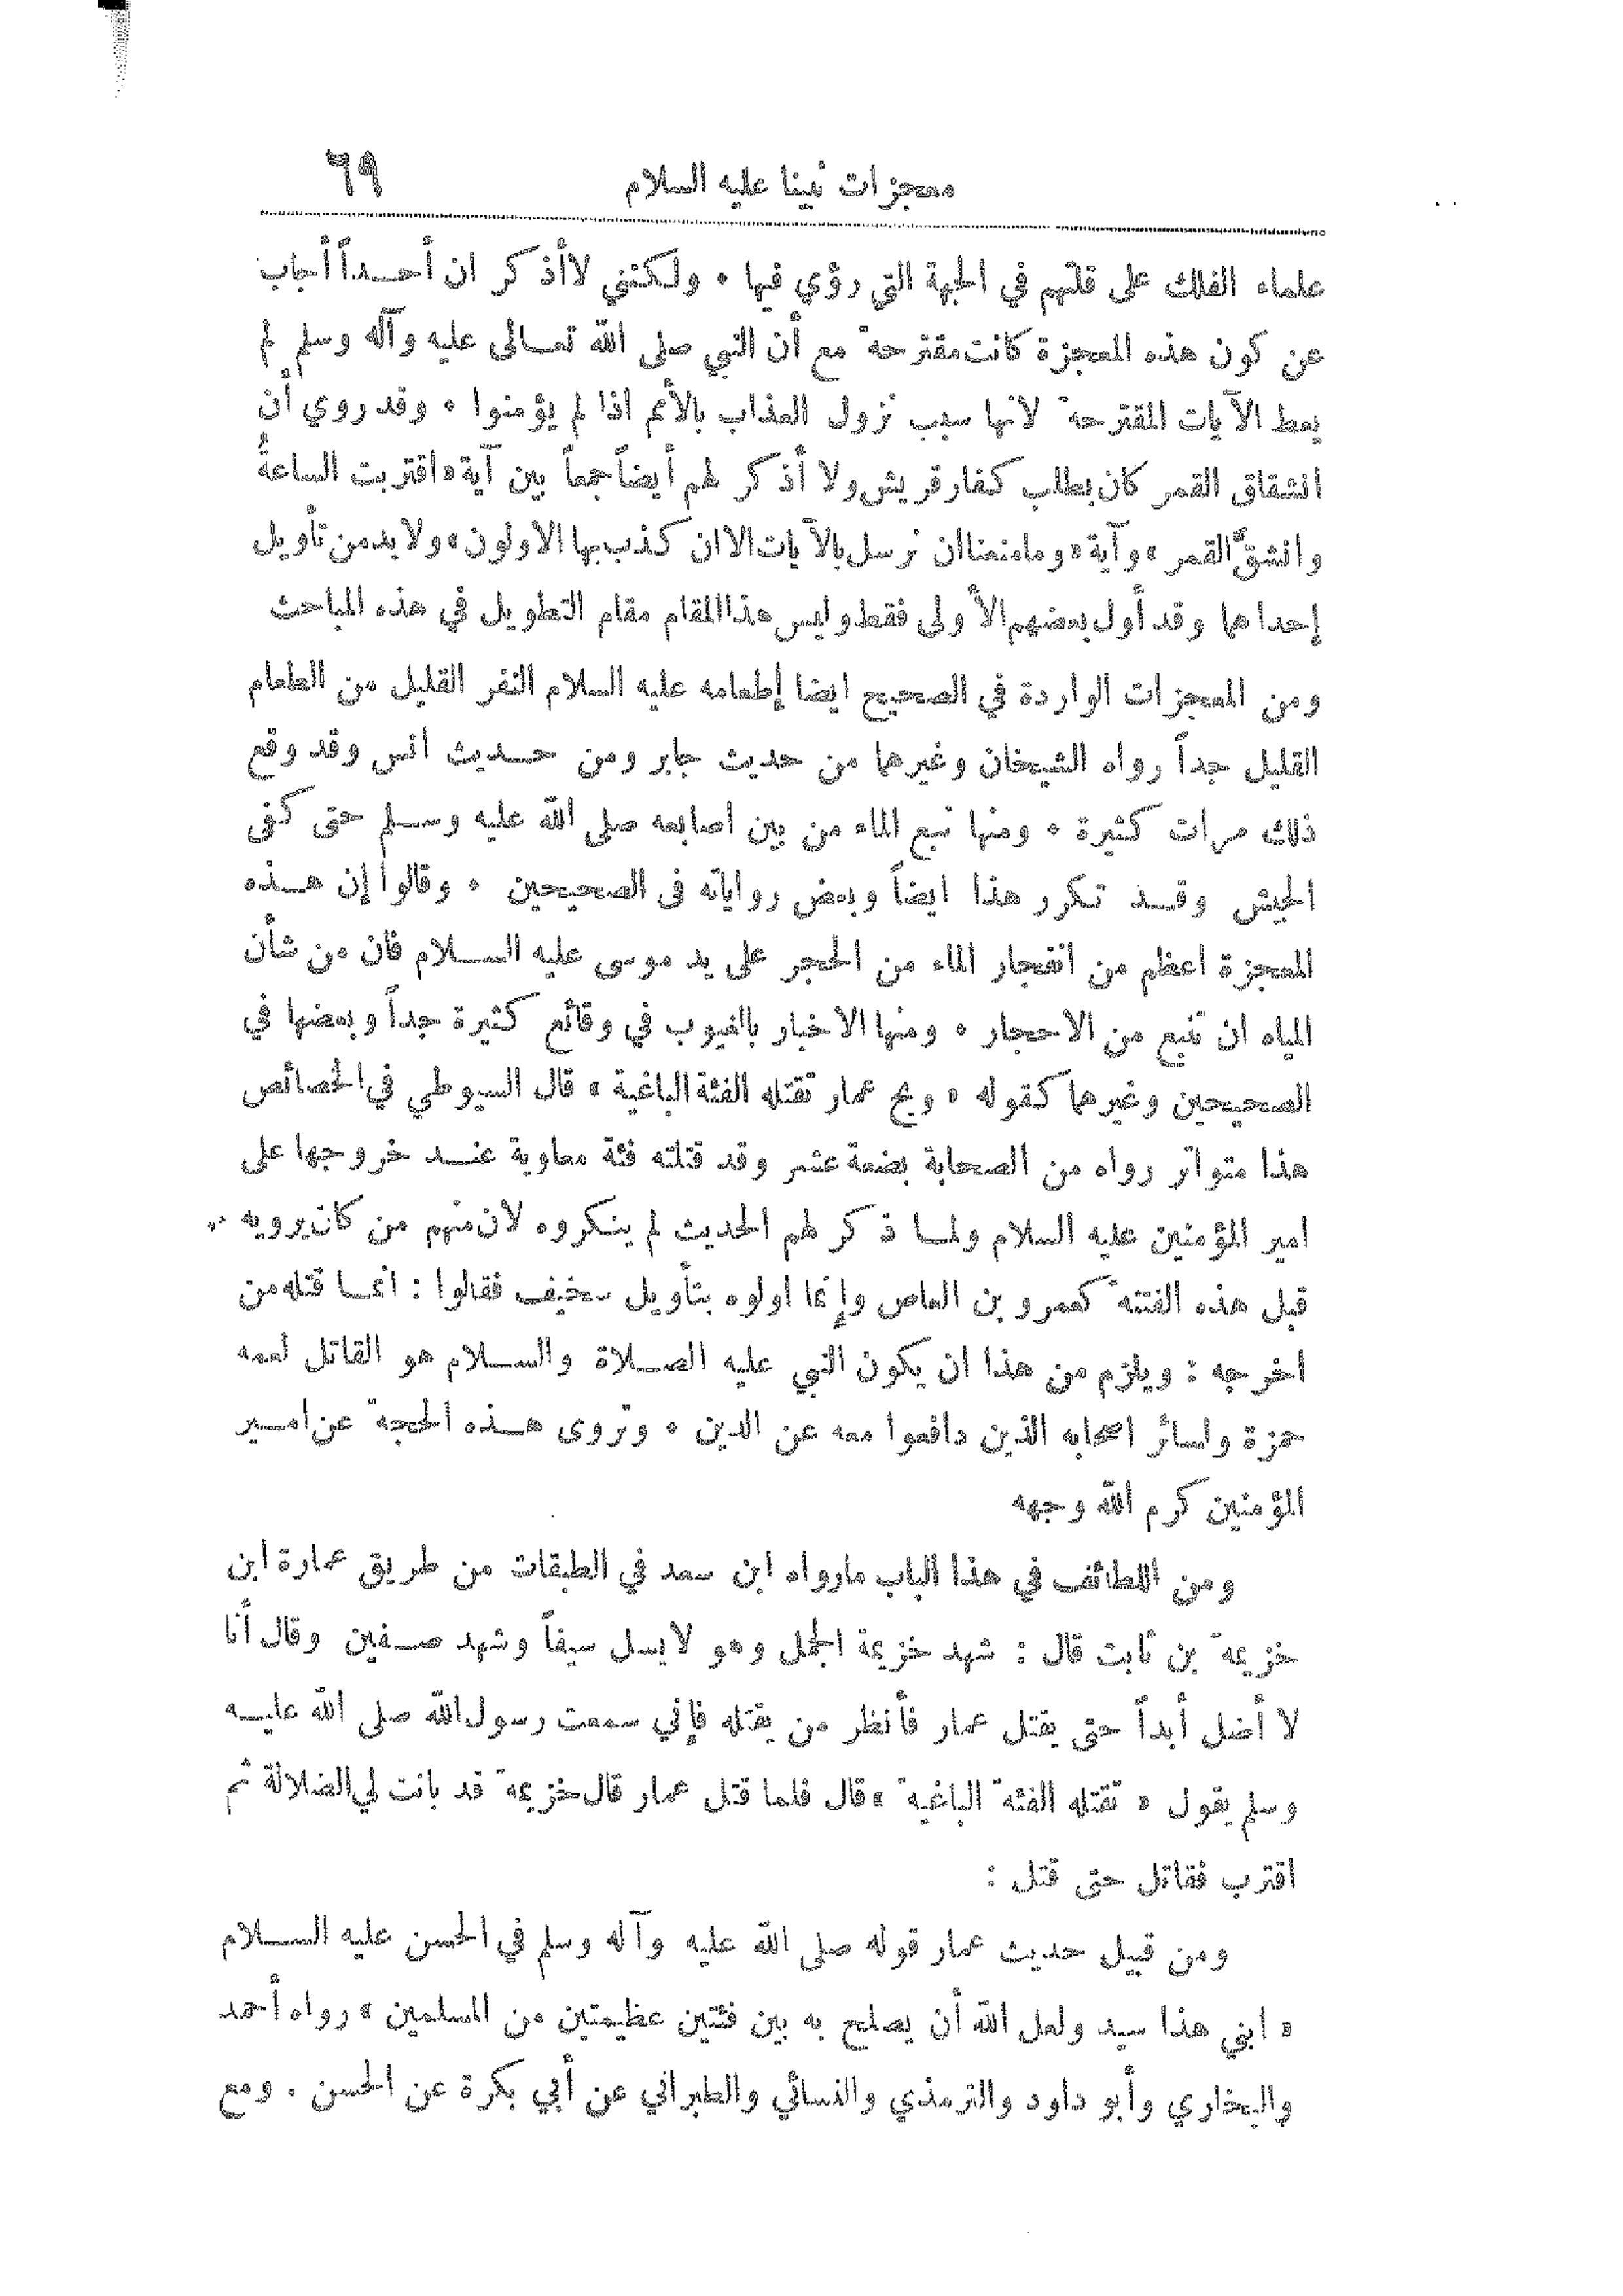 معجزات نبينا عليه السلام ٦٩
علماء الفلك على قلتهم في الجهة التي رؤي فيها ٠ ولكنني لا أذكر ان أحداً أجاب
عن كون هذه المعجزة كانت مقترحة مع أن النبي صلى الله تعالى عليه وآله وسلم لم
يعط الآيات المقترحة لانها سبب نزول العذاب بالأمم اذا لم يؤمنوا ٠ وقد روي أن
انشقاق القمر كان بطلب كفار قريش ولا أذكر لهم أيضاً جمعاً بين آية «اقتربت الساعةُ
وانشقَّ القمر» وآية «وما منعنا ان نرسل بالآيات الا ان كذب بها الاولون» ولا بد من تأويل
إحداهما وقد أول بعضهم الأولى فقط وليس هذا المقام مقام التطويل في هذه المباحث
ومن المعجزات الواردة في الصحيح ايضا إطعامه عليه السلام النفر القليل من الطعام
القليل جداً رواه الشيخان وغيرهما من حديث جابر ومن حديث انس وقد وقع
ذلك مرات كثيرة ٠ ومنها نبع الماء من بين اصابعه صلى الله عليه وسلم حتى كفى
الجيش وقد تكرر هذا ايضاً وبعض رواياته فى الصحيحين ٠ وقالوا إن هذه
المعجزة اعظم من انفجار الماء من الحجر على يد موسى عليه السلام فان من شأن
المياه ان تنبع من الاحجار ٠ ومنها الاخبار بالغيوب في وقائع كثيرة جداً وبعضها في
الصحيحين وغيرهما كقوله « ويح عمار تقتله الفئة الباغية » قال السيوطي في الخصائص
هذا متواتر رواه من الصحابة بضعة عشر وقد قتلته فئة معاوية عند خروجها على
امير المؤمنين عليه السلام ولما ذكر لهم الحديث لم ينكروه لان منهم من كان يرويه
قبل هذه الفتنة كعمرو بن العاص وإنما اولوه بتأويل سخيف فقالوا : انما قتله من
اخرجه : ويلزم من هذا ان يكون النبي عليه الصلاة والسلام هو القاتل لعمه
حمزة ولسائر اصحابه الذين دافعوا معه عن الدين ٠ وتروى هذه الحجة عن امير
المؤمنين كرم الله وجهه
ومن اللطائف في هذا الباب مارواه ابن سعد في الطبقات من طريق عمارة ابن
خزيمة بن ثابت قال : شهد خزيمة الجمل وهو لا يسل سيفاً وشهد صفين وقال أنا
لا أضل أبداً حتى يقتل عمار فأنظر من يقتله فإني سمعت رسول الله صلى الله عليه
وسلم يقول « تقتله الفئة الباغية » قال فلما قتل عمار قال خزيمة قد بانت لي الضلالة ثم
اقترب فقاتل حتى قتل :
ومن قبيل حديث عمار قوله صلى الله عليه وآله وسلم في الحسن عليه السلام
« ابني هذا سيد ولعل الله أن يصلح به بين فئتين عظيمتين من المسلمين » رواه أحمد
والبخاري وأبو داود والترمذي والنسائي والطبراني عن أبي بكرة عن الحسن ٠ ومع